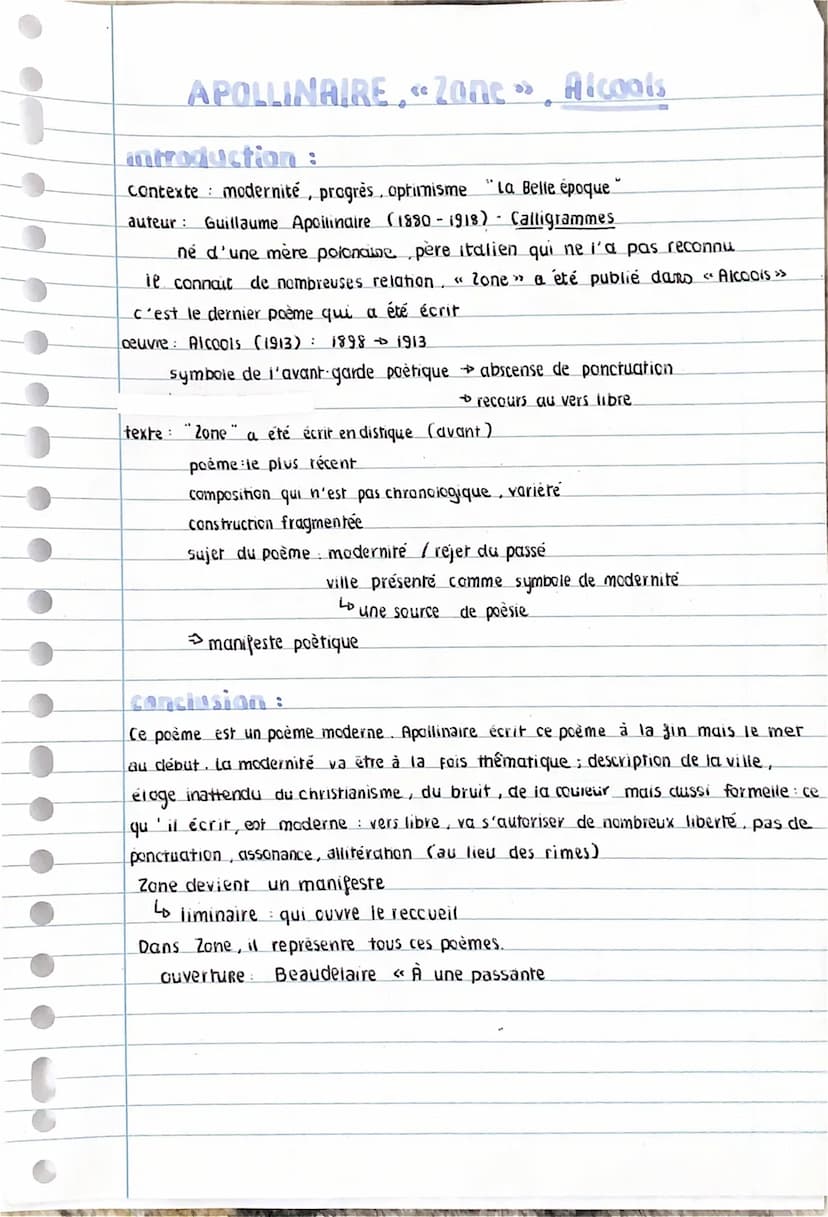 APOLLINAIRE, « Zone », Alcools
introduction :
contexte : modernité, progrès, optimisme "La Belle époque"
auteur : Guillaume Apollinaire (1880 - 1918) - Calligrammes
né d'une mère polonaise, père italien qui ne l'a pas reconnu
il connait de nombreuses relation. « Zone » a été publié dans « Alcools »
c'est le dernier poème qui a été écrit
œuvre : Alcools (1913) : 1898 → 1913
symbole de l'avant-garde poètique → abscense de ponctuation
→ recours au vers libre
texte : "Zone" a été écrit en distique (avant)
poème : le plus récent
composition qui n'est pas chronologique, variété
construction fragmentée
sujet du poème : modernité / rejet du passé
ville présenté comme symbole de modernité
↳ une source de poèsie
⇒ manifeste poètique
conclusion :
Ce poème est un poème moderne. Apollinaire écrit ce poème à la fin mais le mer
au début. La modernité va être à la fois thématique ; description de la ville,
éloge inattendu du christianisme, du bruit, de la couleur mais aussi formelle : ce
qu'il écrit, est moderne : vers libre, va s'autoriser de nombreux liberté, pas de
ponctuation, assonance, allitération (au lieu des rimes)
Zone devient un manifeste
↳ liminaire : qui ouvre le reccueil
Dans Zone, il représente tous ces poèmes.
ouverture : Beaudelaire « À une passante